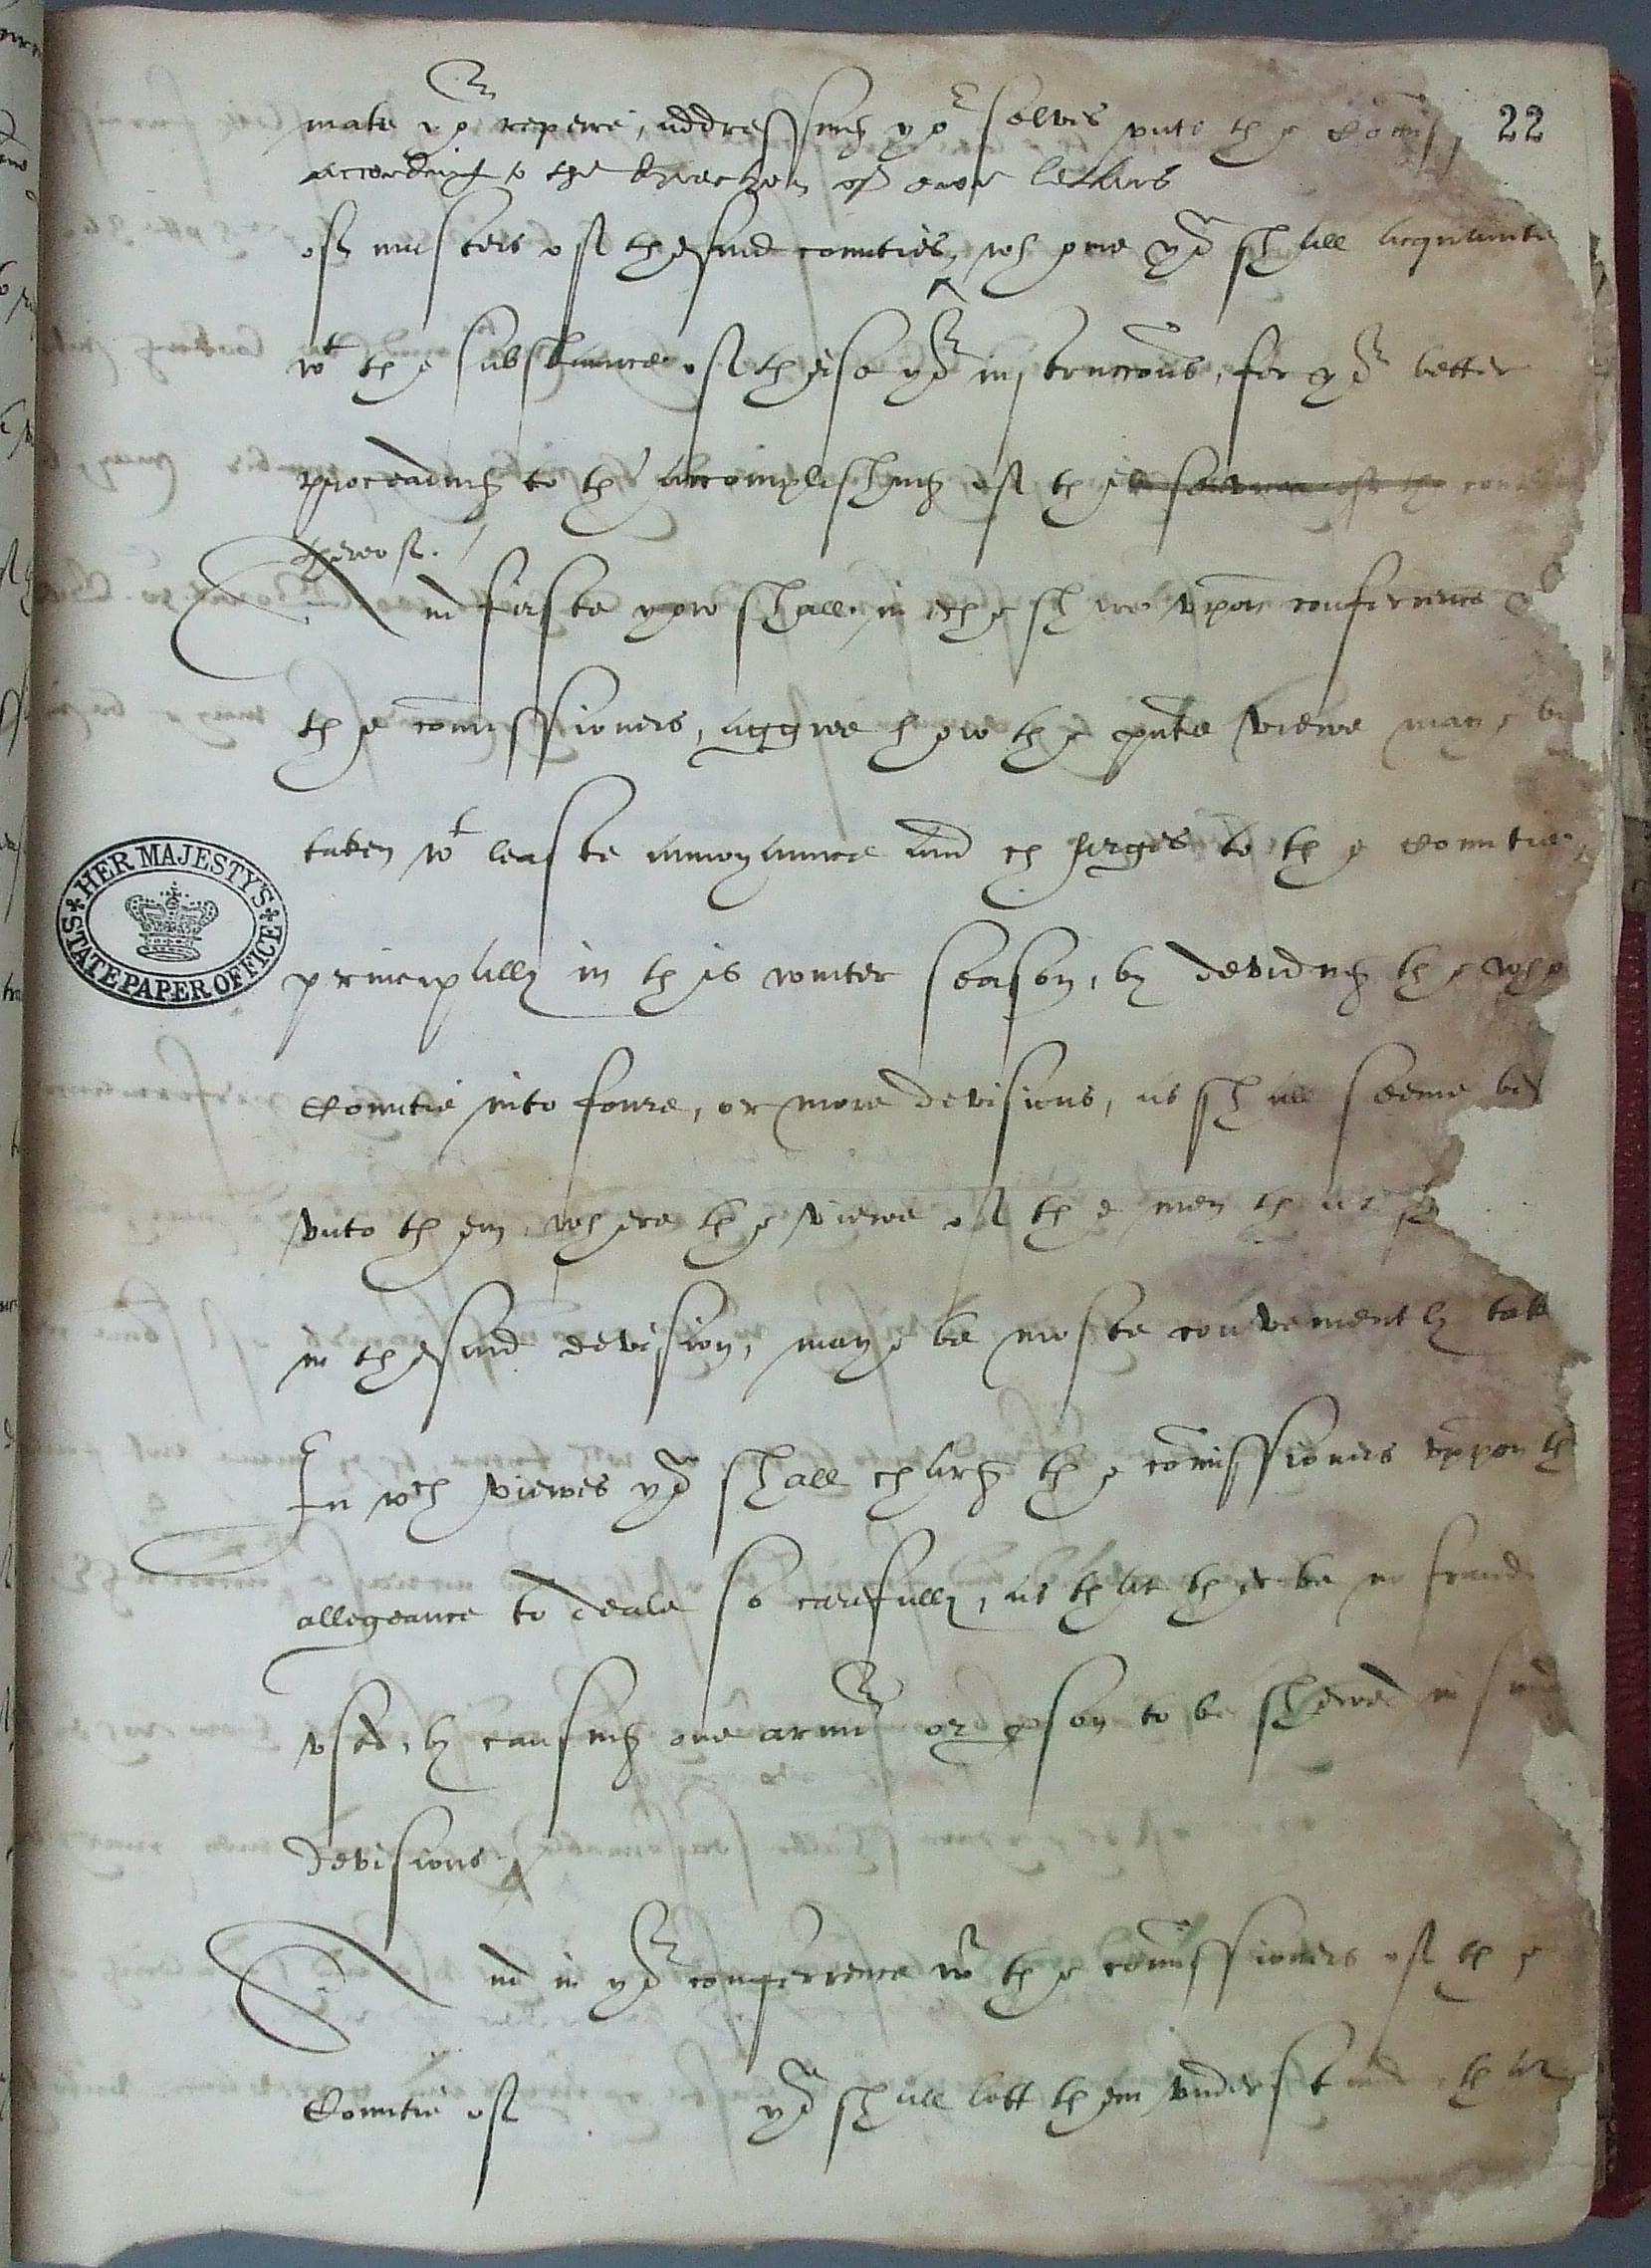 22
make yor repeire, addressing yor selves vnto the Comiss
according to the direction of owr letters
of musters of thesaid counties, whome yow shall acquainte
wt the substaunce of theise yor instruccons, for yor better
proceading to th' accomplishing of the service of the
thereof.
And firste yow shall in eche shire vpon conference
the comissioners, aggree how the pnte viewe maye be
taken wt leaste annoyaunce and charges to the Countie,
principally in this winter season, by deviding the who
Countie into foure, or more devisions, as shall seeme bes
vnto them, where the viewe of the men that
in thesaid devision, maye be moste conveniently take
In wch viewes yow shall charg the comissioners vppon th
allegeaunce to deale so carefully, as that ther be no fraude
vsed, by causing one armor or pson to be shewed in
devisions.
And in yor conference wt the comissioners of the
Countie of yow shall lett them vnderstand that
HER MAJESTY'S
STATE PAPER OFFICE